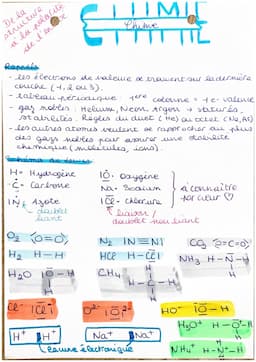 De la
structure
à la polarité
de l'entité
CHIMIE
Chimie
Rappels
- les électrons de valence se trouvent sur la dernière
couche (1, 2 ou 3).
- tableau périodique : 1ère colonne = 1 e- valence
- gaz nobles : Helium, Neon, Argon → saturés,
stabilités. Règles du duet (He) ou octet (Ne, Ar)
- les autres atomes veulent se rapprocher au plus
des gaz nobles pour assurer une stabilité
chimique (molécules, ions).
Schéma de Lewis
H- Hydrogène O Oxygène
-C- Carbone Na- Sodium
N Azote Cl- Chlorure
à connaître
par cœur ♡
doublet
liant
liaison /
doublet non liant
O2 O=O N2 N≡N CO2 O=C=O
H2 H-H HCl H-Cl NH3 H-N-H
H
H2O O-H CH4 H-C-H
H
Cl- Cl O2- O HO- O-H
H+ H+ Na+ Na+ H3O+ H-O-H
H
lacune électronique NH4+ H-N-H